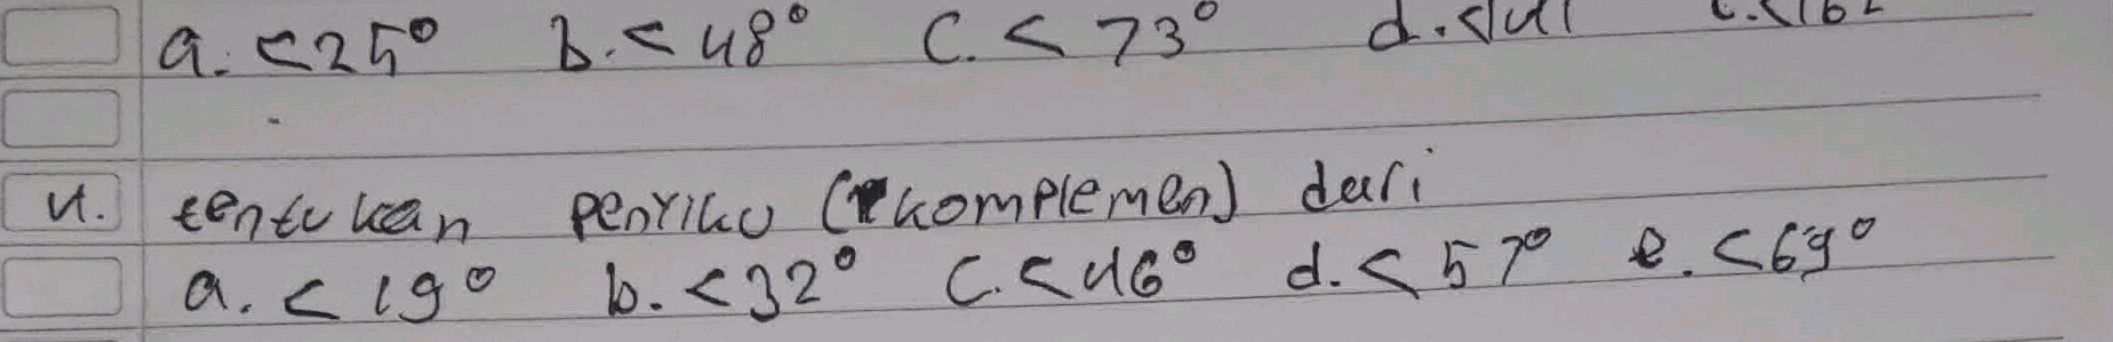 a. <25° b. <48° c. <73° d.
4. tentukan penyiku (komplemen) dari
a. <19° b. <32° c. <46° d. <57° e. <69°